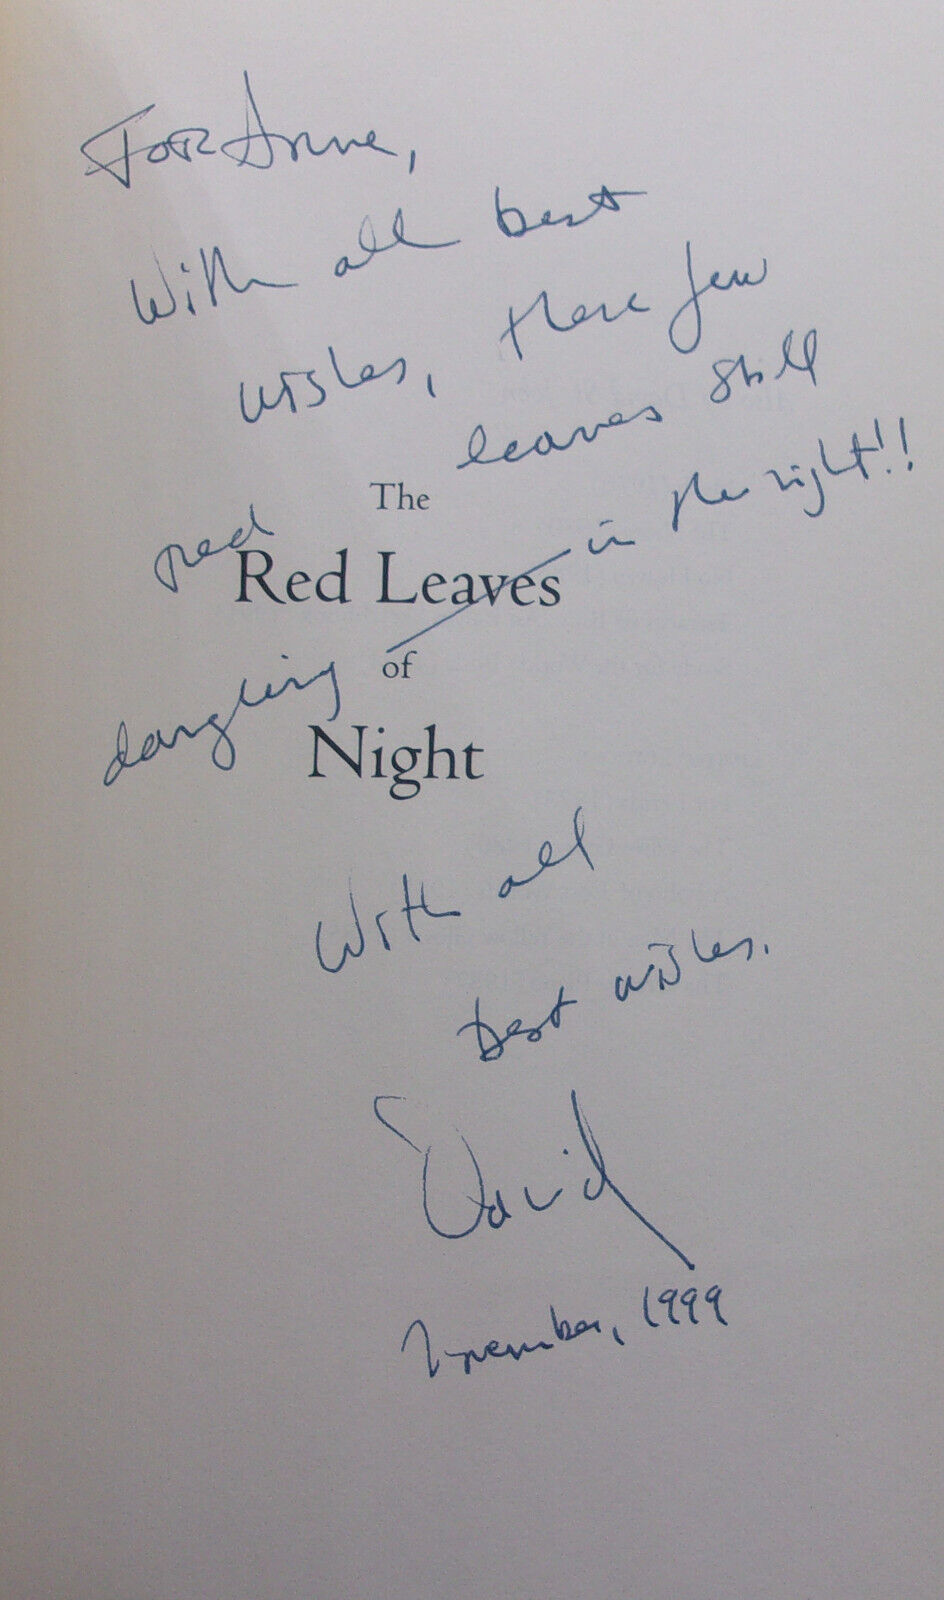 For Anne,
With all best
wishes, these few
red leaves still
dangling in the night!!
The
Red Leaves
of
Night
With all
best wishes.
David
November, 1999